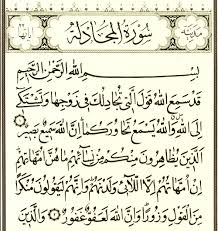 مدنية سورة المجادلة آياتها
بسم الله الرحمن الرحيم
قد سمع الله قول التي تجادلك في زوجها وتشتكي
إلى الله والله يسمع تحاوركما إن الله سميع بصير
الذين يظاهرون منكم من نسائهم ما هن أمهاتهم
إن أمهاتهم إلا اللائي ولدنهم وإنهم ليقولون منكرا
من القول وزورا وإن الله لعفو غفور والذين